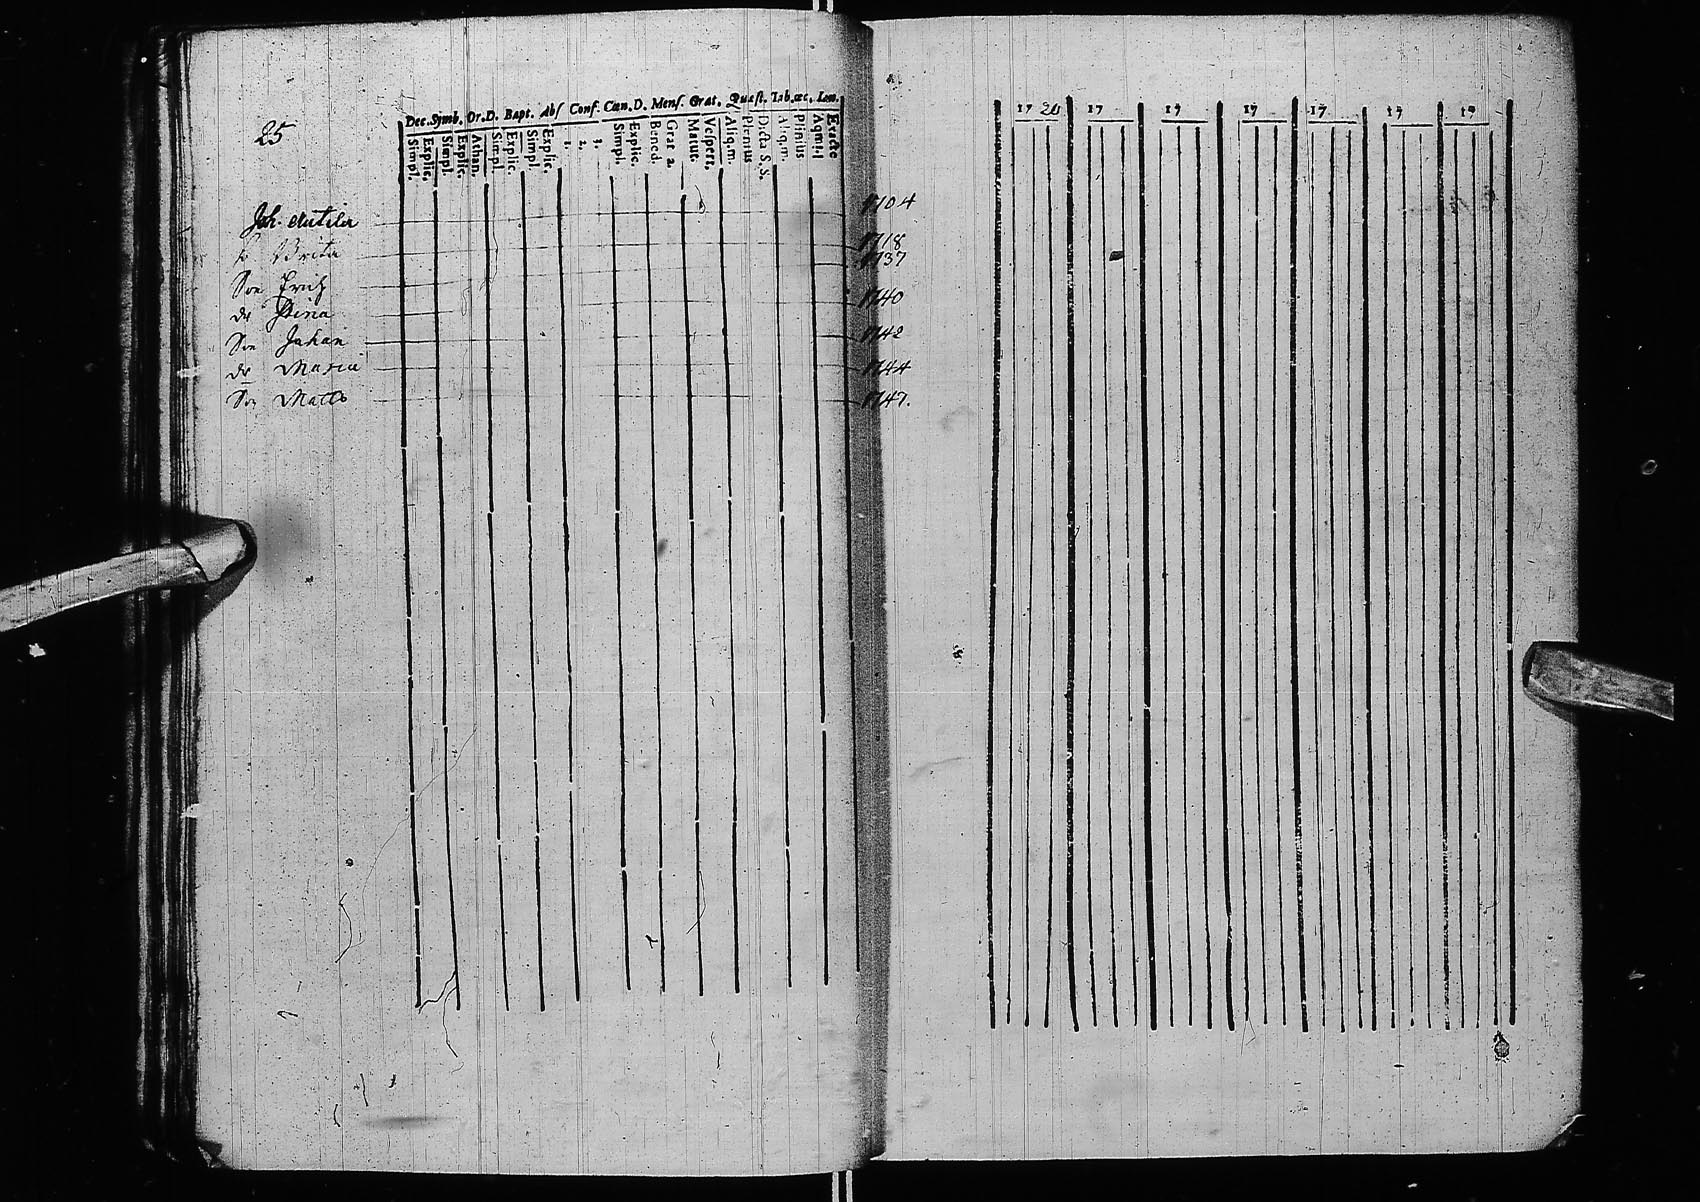 25
Dec. Symb. Or. D. Bapt. Abs Conf. Cœn. D. Mens. Grat. Quæst. Tab. œc. Lem.
Simpl.
Explic.
Simpl.
Explic.
Athan.
Simpl.
Explic.
Simpl.
Explic.
1.
2.
3.
Simpl.
Explic.
Bened.
Grat. 2.
Matut.
Vespert.
Aliq. m.
Plenius
Dicta S. S.
Aliq. m.
Plenius
Exacte
17 20 17 17 17 17 17 17
Joh. 1704
h Brita 1718
Son Erich 1737
dr Stina 1740
Son Johan 1742
dr Maria 1744
Son Matts 1747.